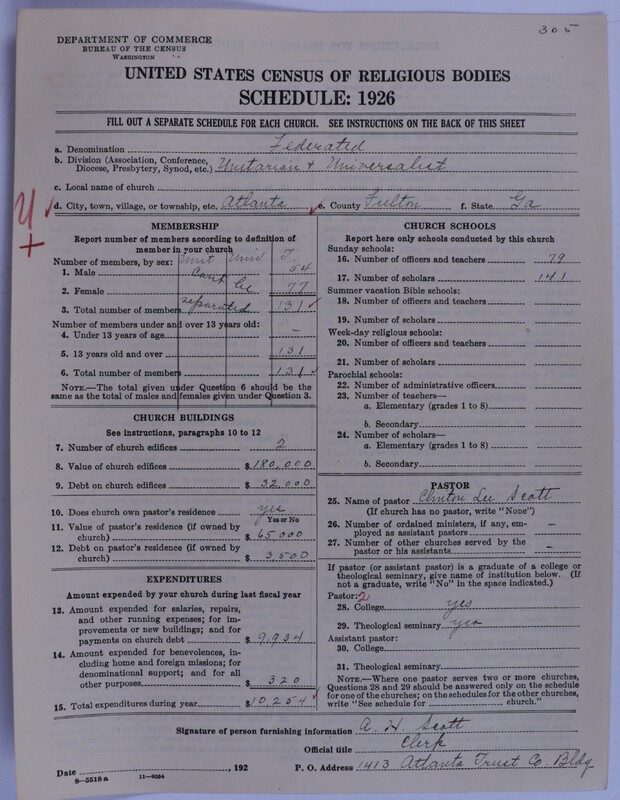 305
DEPARTMENT OF COMMERCE
BUREAU OF THE CENSUS
WASHINGTON
UNITED STATES CENSUS OF RELIGIOUS BODIES
SCHEDULE: 1926
FILL OUT A SEPARATE SCHEDULE FOR EACH CHURCH. SEE INSTRUCTIONS ON THE BACK OF THIS SHEET
a. Denomination Federated
b. Division (Association, Conference, Diocese, Presbytery, Synod, etc.) Unitarian + Universalist
c. Local name of church
d. City, town, village, or township, etc. Atlanta e. County Fulton f. State Ga
MEMBERSHIP
Report number of members according to definition of
member in your church
Number of members, by sex: Unit Univ T.
1. Male Can't 54
2. Female be 77
3. Total number of members separated 131
Number of members under and over 13 years old:
4. Under 13 years of age –
5. 13 years old and over 131
6. Total number of members 131
NOTE.—The total given under Question 6 should be the
same as the total of males and females given under Question 3.
CHURCH BUILDINGS
See instructions, paragraphs 10 to 12
7. Number of church edifices 2
8. Value of church edifices $ 180,000
9. Debt on church edifices $ 32,000
10. Does church own pastor's residence? yes
Yes or No
11. Value of pastor's residence (if owned by
church) $ 65,000
12. Debt on pastor's residence (if owned by
church) $ 3,500
EXPENDITURES
Amount expended by your church during last fiscal year
13. Amount expended for salaries, repairs,
and other running expenses; for im-
provements or new buildings; and for
payments on church debt $ 9,934
14. Amount expended for benevolences, in-
cluding home and foreign missions; for
denominational support; and for all
other purposes $ 320
15. Total expenditures during year $ 10254
CHURCH SCHOOLS
Report here only schools conducted by this church
Sunday schools:
16. Number of officers and teachers 19
17. Number of scholars 141
Summer vacation Bible schools:
18. Number of officers and teachers
19. Number of scholars
Week-day religious schools:
20. Number of officers and teachers
21. Number of scholars
Parochial schools:
22. Number of administrative officers
23. Number of teachers—
a. Elementary (grades 1 to 8)
b. Secondary
24. Number of scholars—
a. Elementary (grades 1 to 8)
b. Secondary
PASTOR
25. Name of pastor Clinton Lee Scott
(If church has no pastor, write "None")
26. Number of ordained ministers, if any, em-
ployed as assistant pastors –
27. Number of other churches served by the
pastor or his assistants –
If pastor (or assistant pastor) is a graduate of a college or
theological seminary, give name of institution below. (If
not a graduate, write "No" in the space indicated.)
Pastor: 2
28. College yes
29. Theological seminary yes
Assistant pastor:
30. College
31. Theological seminary
NOTE.—Where one pastor serves two or more churches,
Questions 28 and 29 should be answered only on the schedule
for one of the churches; on the schedules for the other churches,
write "See schedule for church."
Signature of person furnishing information A. H. Scott
Official title Clerk
Date , 192 P. O. Address 1413 Atlanta Trust Co. Bldg
8-5518a 11-9054